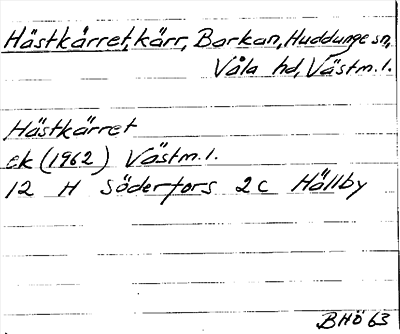 Hästkärret, kärr, Barkan, Huddunge sn,
Våla hd, Västm. l.
Hästkärret
ek (1962) Västm. l.
12 H Söderfors 2c Hällby
BHÖ 63